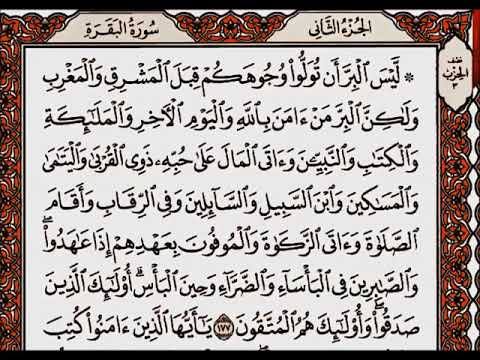 الجزء الثاني
سورة البقرة
نصف
الحزب
٣
۞ لَّيْسَ الْبِرَّ أَن تُوَلُّوا۟ وُجُوهَكُمْ قِبَلَ الْمَشْرِقِ وَالْمَغْرِبِ
وَلَٰكِنَّ الْبِرَّ مَنْ ءَامَنَ بِاللَّهِ وَالْيَوْمِ الْءَاخِرِ وَالْمَلَٰٓئِكَةِ
وَالْكِتَٰبِ وَالنَّبِيِّۦنَ وَءَاتَى الْمَالَ عَلَىٰ حُبِّهِۦ ذَوِى الْقُرْبَىٰ وَالْيَتَٰمَىٰ
وَالْمَسَٰكِينَ وَابْنَ السَّبِيلِ وَالسَّآئِلِينَ وَفِى الرِّقَابِ وَأَقَامَ
الصَّلَوٰةَ وَءَاتَى الزَّكَوٰةَ وَالْمُوفُونَ بِعَهْدِهِمْ إِذَا عَٰهَدُوا۟ۖ
وَالصَّٰبِرِينَ فِى الْبَأْسَآءِ وَالضَّرَّآءِ وَحِينَ الْبَأْسِۗ أُو۟لَٰٓئِكَ الَّذِينَ
صَدَقُوا۟ۖ وَأُو۟لَٰٓئِكَ هُمُ الْمُتَّقُونَ ١٧٧ يَٰٓأَيُّهَا الَّذِينَ ءَامَنُوا۟ كُتِبَ